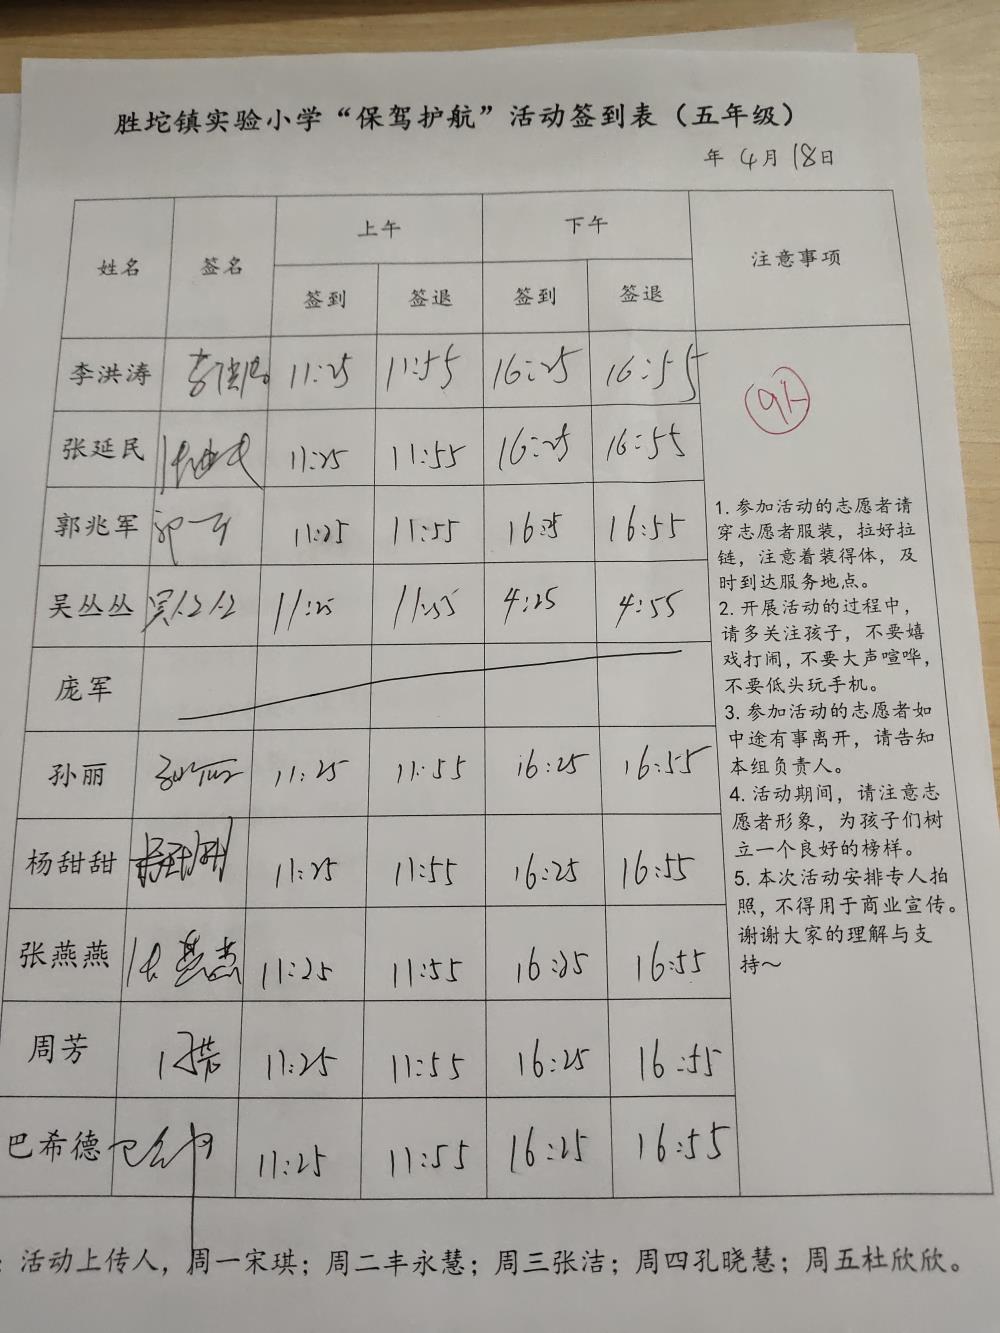 胜坨镇实验小学“保驾护航”活动签到表（五年级）
年 4月 18日
姓名 签名 上午 下午 注意事项
签到 签退 签到 签退
李洪涛 李洪涛 11:25 11:55 16:25 16:55
9人
张延民 张延民 11:25 11:55 16:25 16:55
郭兆军 11:25 11:55 16:25 16:55
吴丛丛 吴丛丛 11:25 11:55 4:25 4:55
庞军
孙丽 孙丽 11:25 11:55 16:25 16:55
杨甜甜 杨甜甜 11:25 11:55 16:25 16:55
张燕燕 张燕燕 11:25 11:55 16:25 16:55
周芳 周芳 11:25 11:55 16:25 16:55
巴希德 巴希德 11:25 11:55 16:25 16:55
1. 参加活动的志愿者请
穿志愿者服装，拉好拉
链，注意着装得体，及
时到达服务地点。
2. 开展活动的过程中，
请多关注孩子，不要嬉
戏打闹，不要大声喧哗，
不要低头玩手机。
3. 参加活动的志愿者如
中途有事离开，请告知
本组负责人。
4. 活动期间，请注意志
愿者形象，为孩子们树
立一个良好的榜样。
5. 本次活动安排专人拍
照，不得用于商业宣传。
谢谢大家的理解与支
持～
：活动上传人，周一宋琪；周二丰永慧；周三张洁；周四孔晓慧；周五杜欣欣。